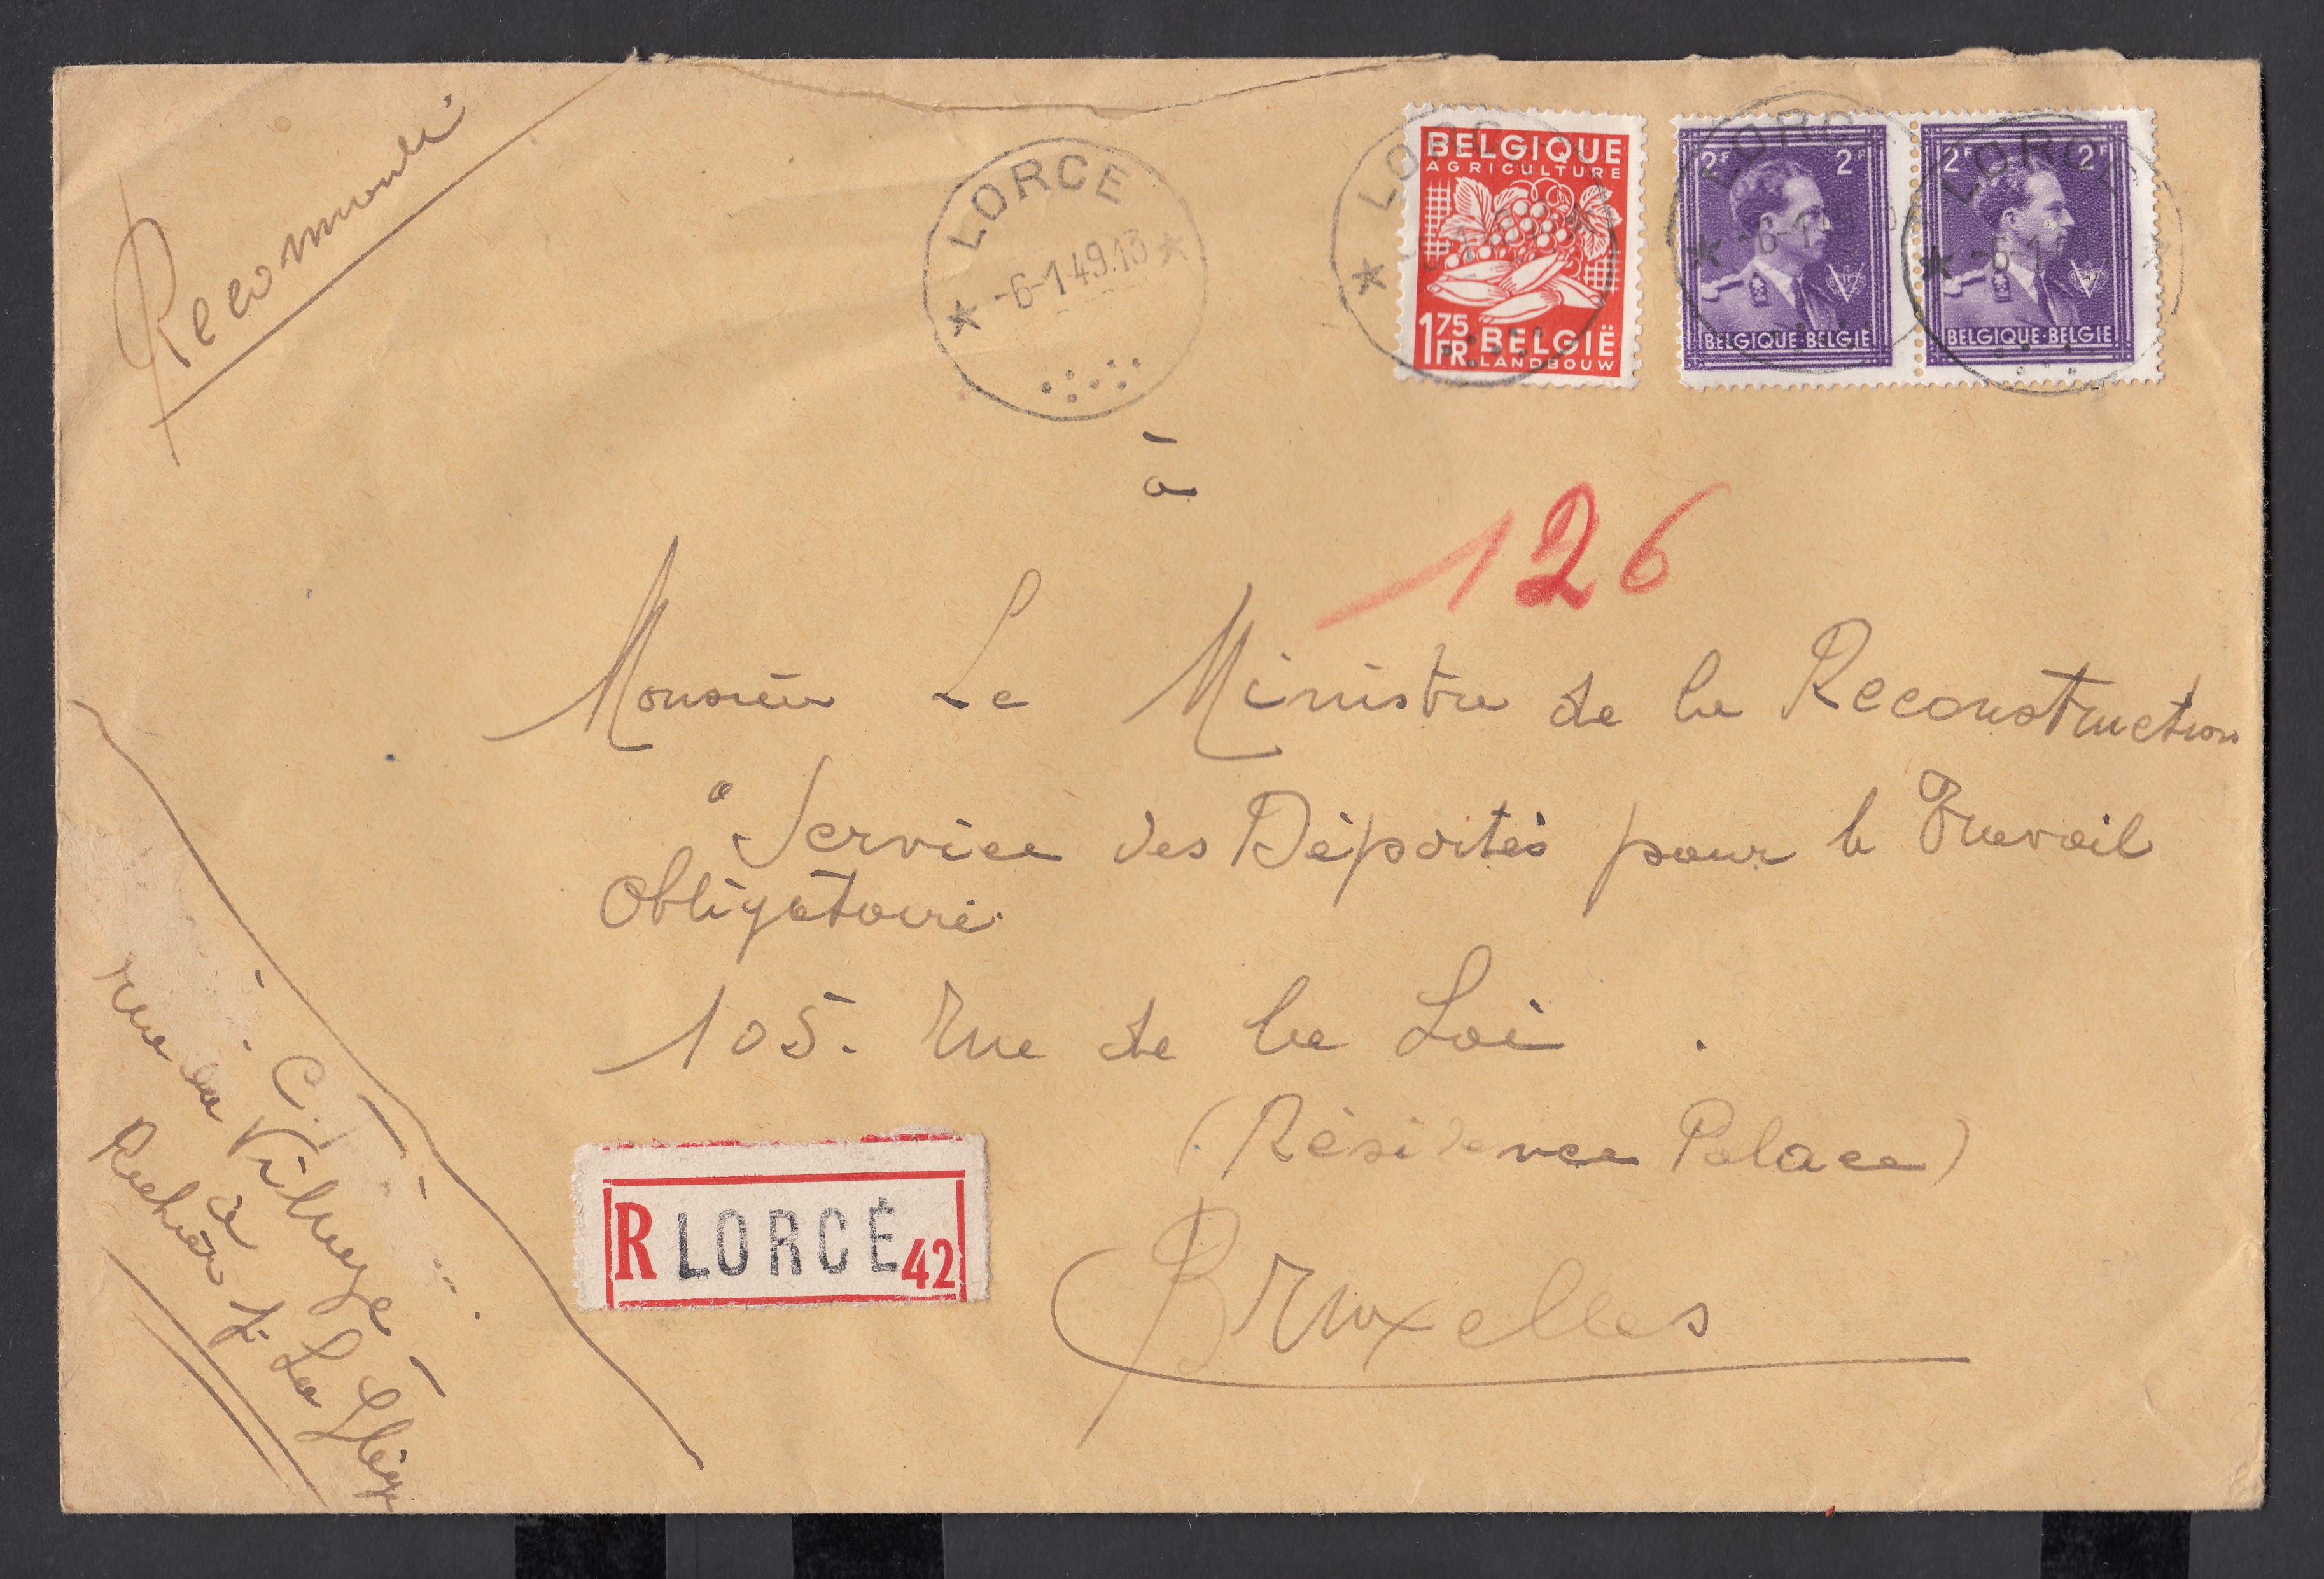 Recommandé
LORCE
-6-1-49.13
LORCE
BELGIQUE
AGRICULTURE
1 75 FR. BELGIË
LANDBOUW
LORCE
-6-1
2F 2F
BELGIQUE·BELGIE
LORCE
-6-1
2F 2F
BELGIQUE·BELGIE
à
126
Monsieur Le Ministre de la Reconstruction
Service des Déportés pour le Travail
Obligatoire.
105. Rue de la Loi.
(Résidence Palace)
Bruxelles
R LORCÉ 42
C.
à
La Gleize